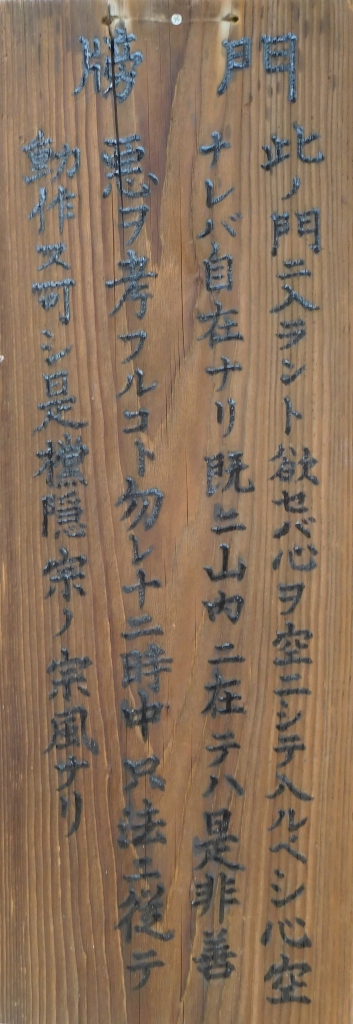 門牓
此ノ門ニ入ラント欲セバ心ヲ空ニシテ入ルベシ心空
ナレバ自在ナリ既ニ山内ニ在テハ是非善
悪ヲ考フルコト勿レ十二時中只法ニ従テ
動作ス可シ是樵隠宗ノ宗風ナリ